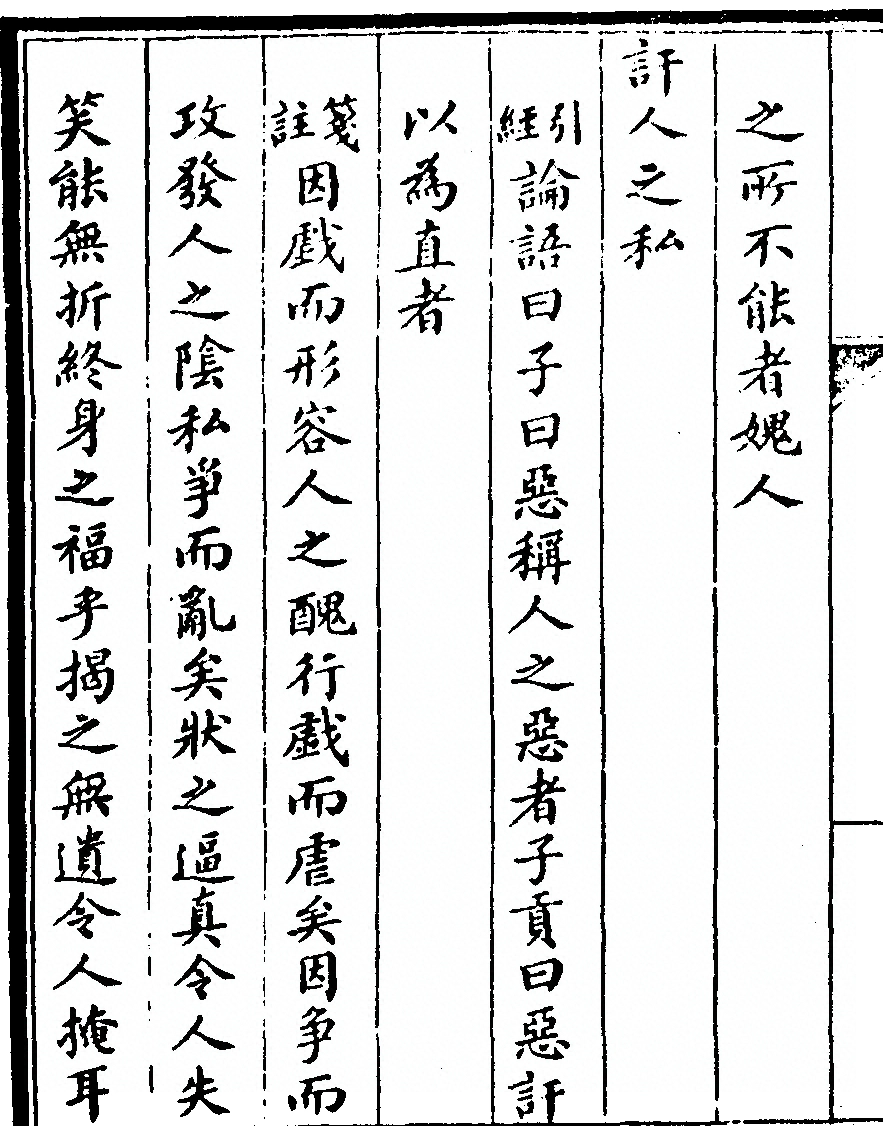 之所不能者媿人
訐人之私
引經論語曰子曰惡稱人之惡者子貢曰惡訐
以為直者
箋註因戲而形容人之醜行戲而虐矣因争而
攻發人之陰私爭而亂矣狀之逼真令人失
笑能無折終身之福乎揭之無遺令人掩耳